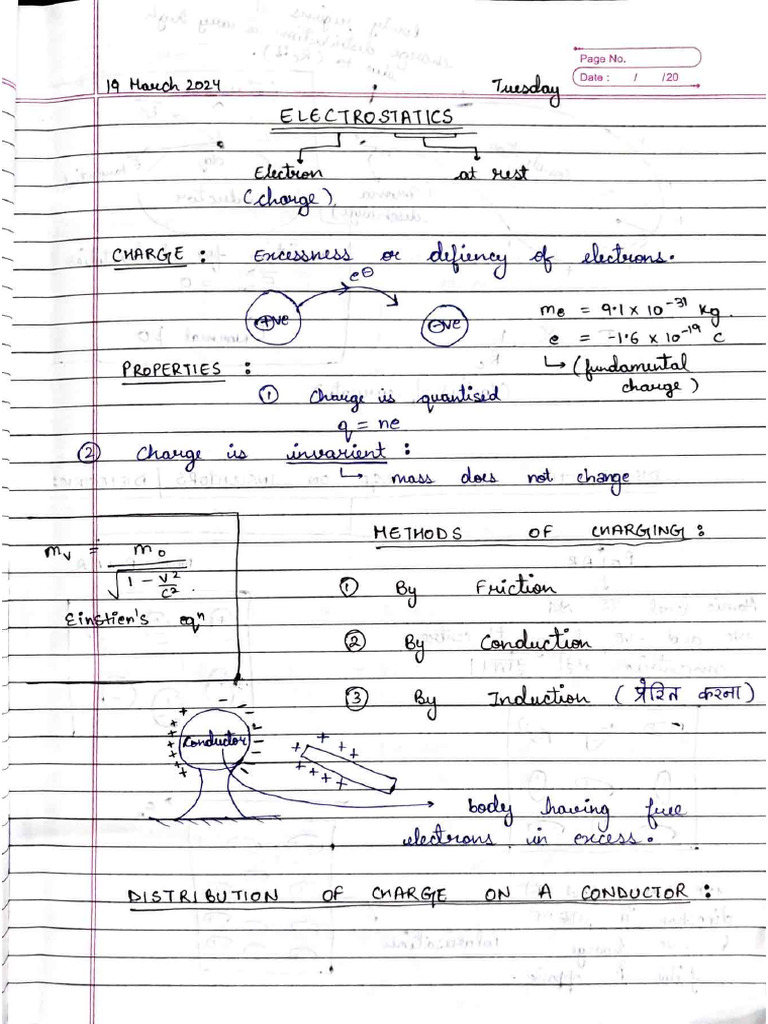 Page No.
Date : / /20
19 March 2024 Tuesday
ELECTROSTATICS
Electron at rest
(charge)
CHARGE : Excessness or defiency of electrons.
e⊖
+ve ⊖ve
me = 9.1 x 10⁻³¹ Kg
e = -1.6 x 10⁻¹⁹ C
(fundamental charge)
PROPERTIES :
① Charge is quantised
q = ne
② Charge is invarient :
mass does not change
METHODS OF CHARGING :
mv = m₀ / √(1 - v²/c²)
Einstien's eqⁿ
① By Friction
② By Conduction
③ By Induction (प्रेरित करना)
Conductor
body having free
electrons in excess.
DISTRIBUTION OF CHARGE ON A CONDUCTOR :